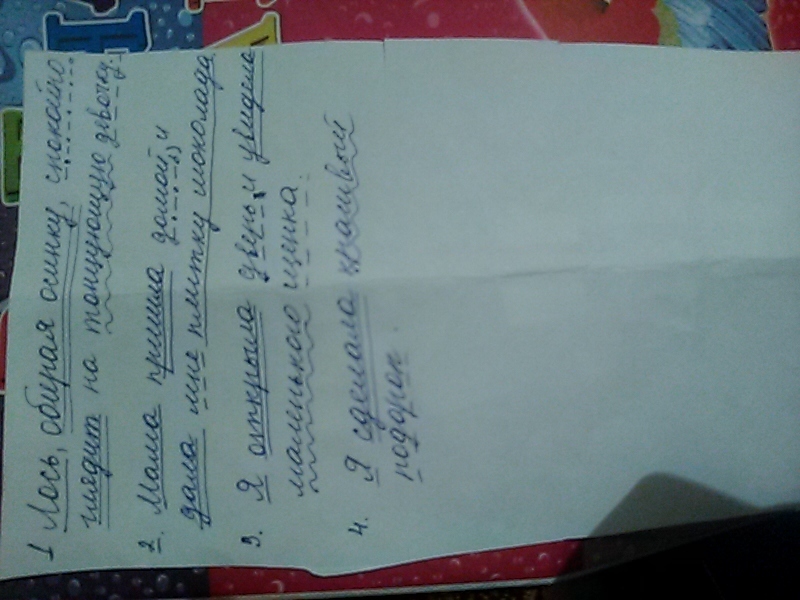 1 Лось, обирая осинку, спокойно
глядит на танцующую девочку.
2. Мама пришла домой, и
дала мне плитку шоколада
3. Я открыла дверь, и увидела
маленького щенка.
4. Я сделала красивый
подарок.